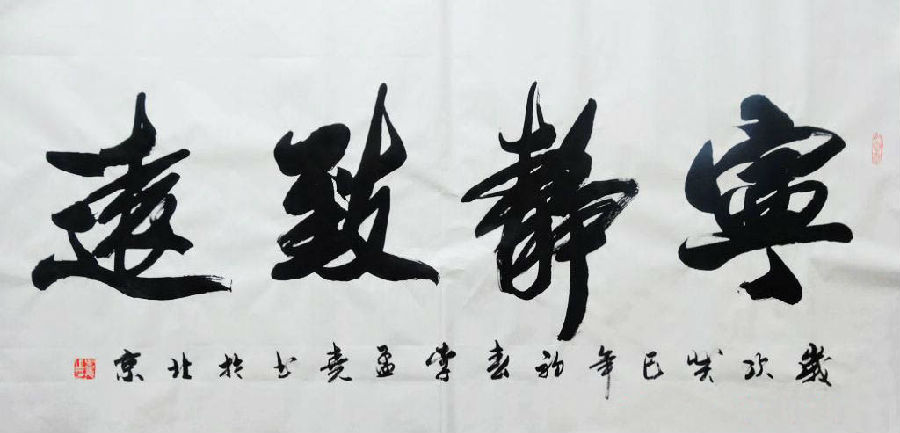 寧靜致遠
歲次癸巳年初春李孟堯书於北京